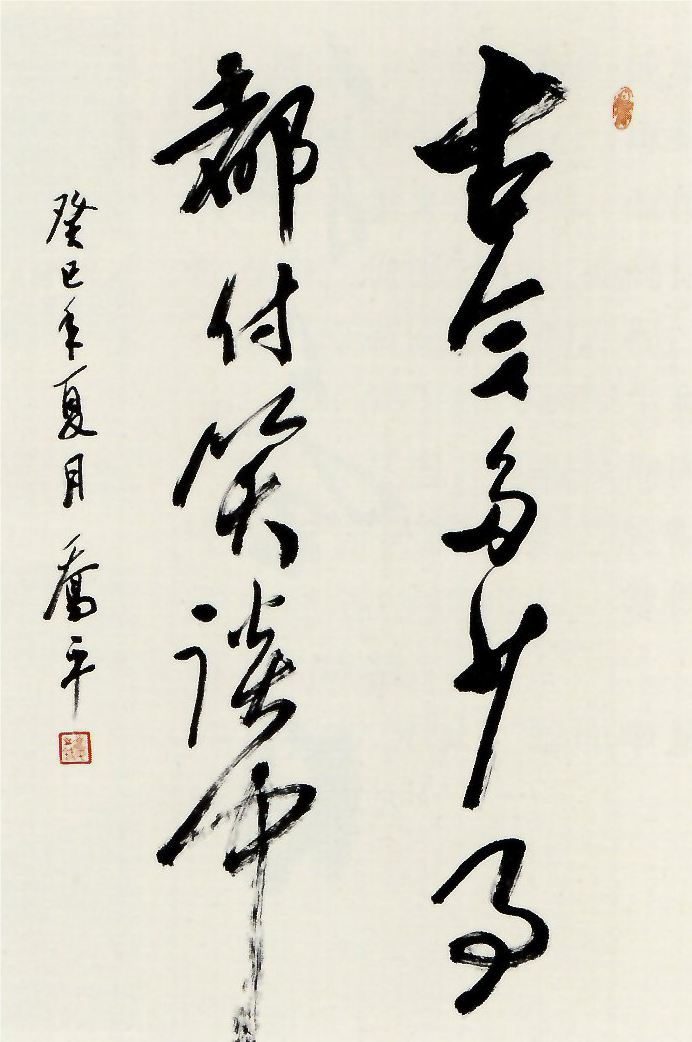 古今多少事
都付笑谈中
癸巳年夏月 乔平